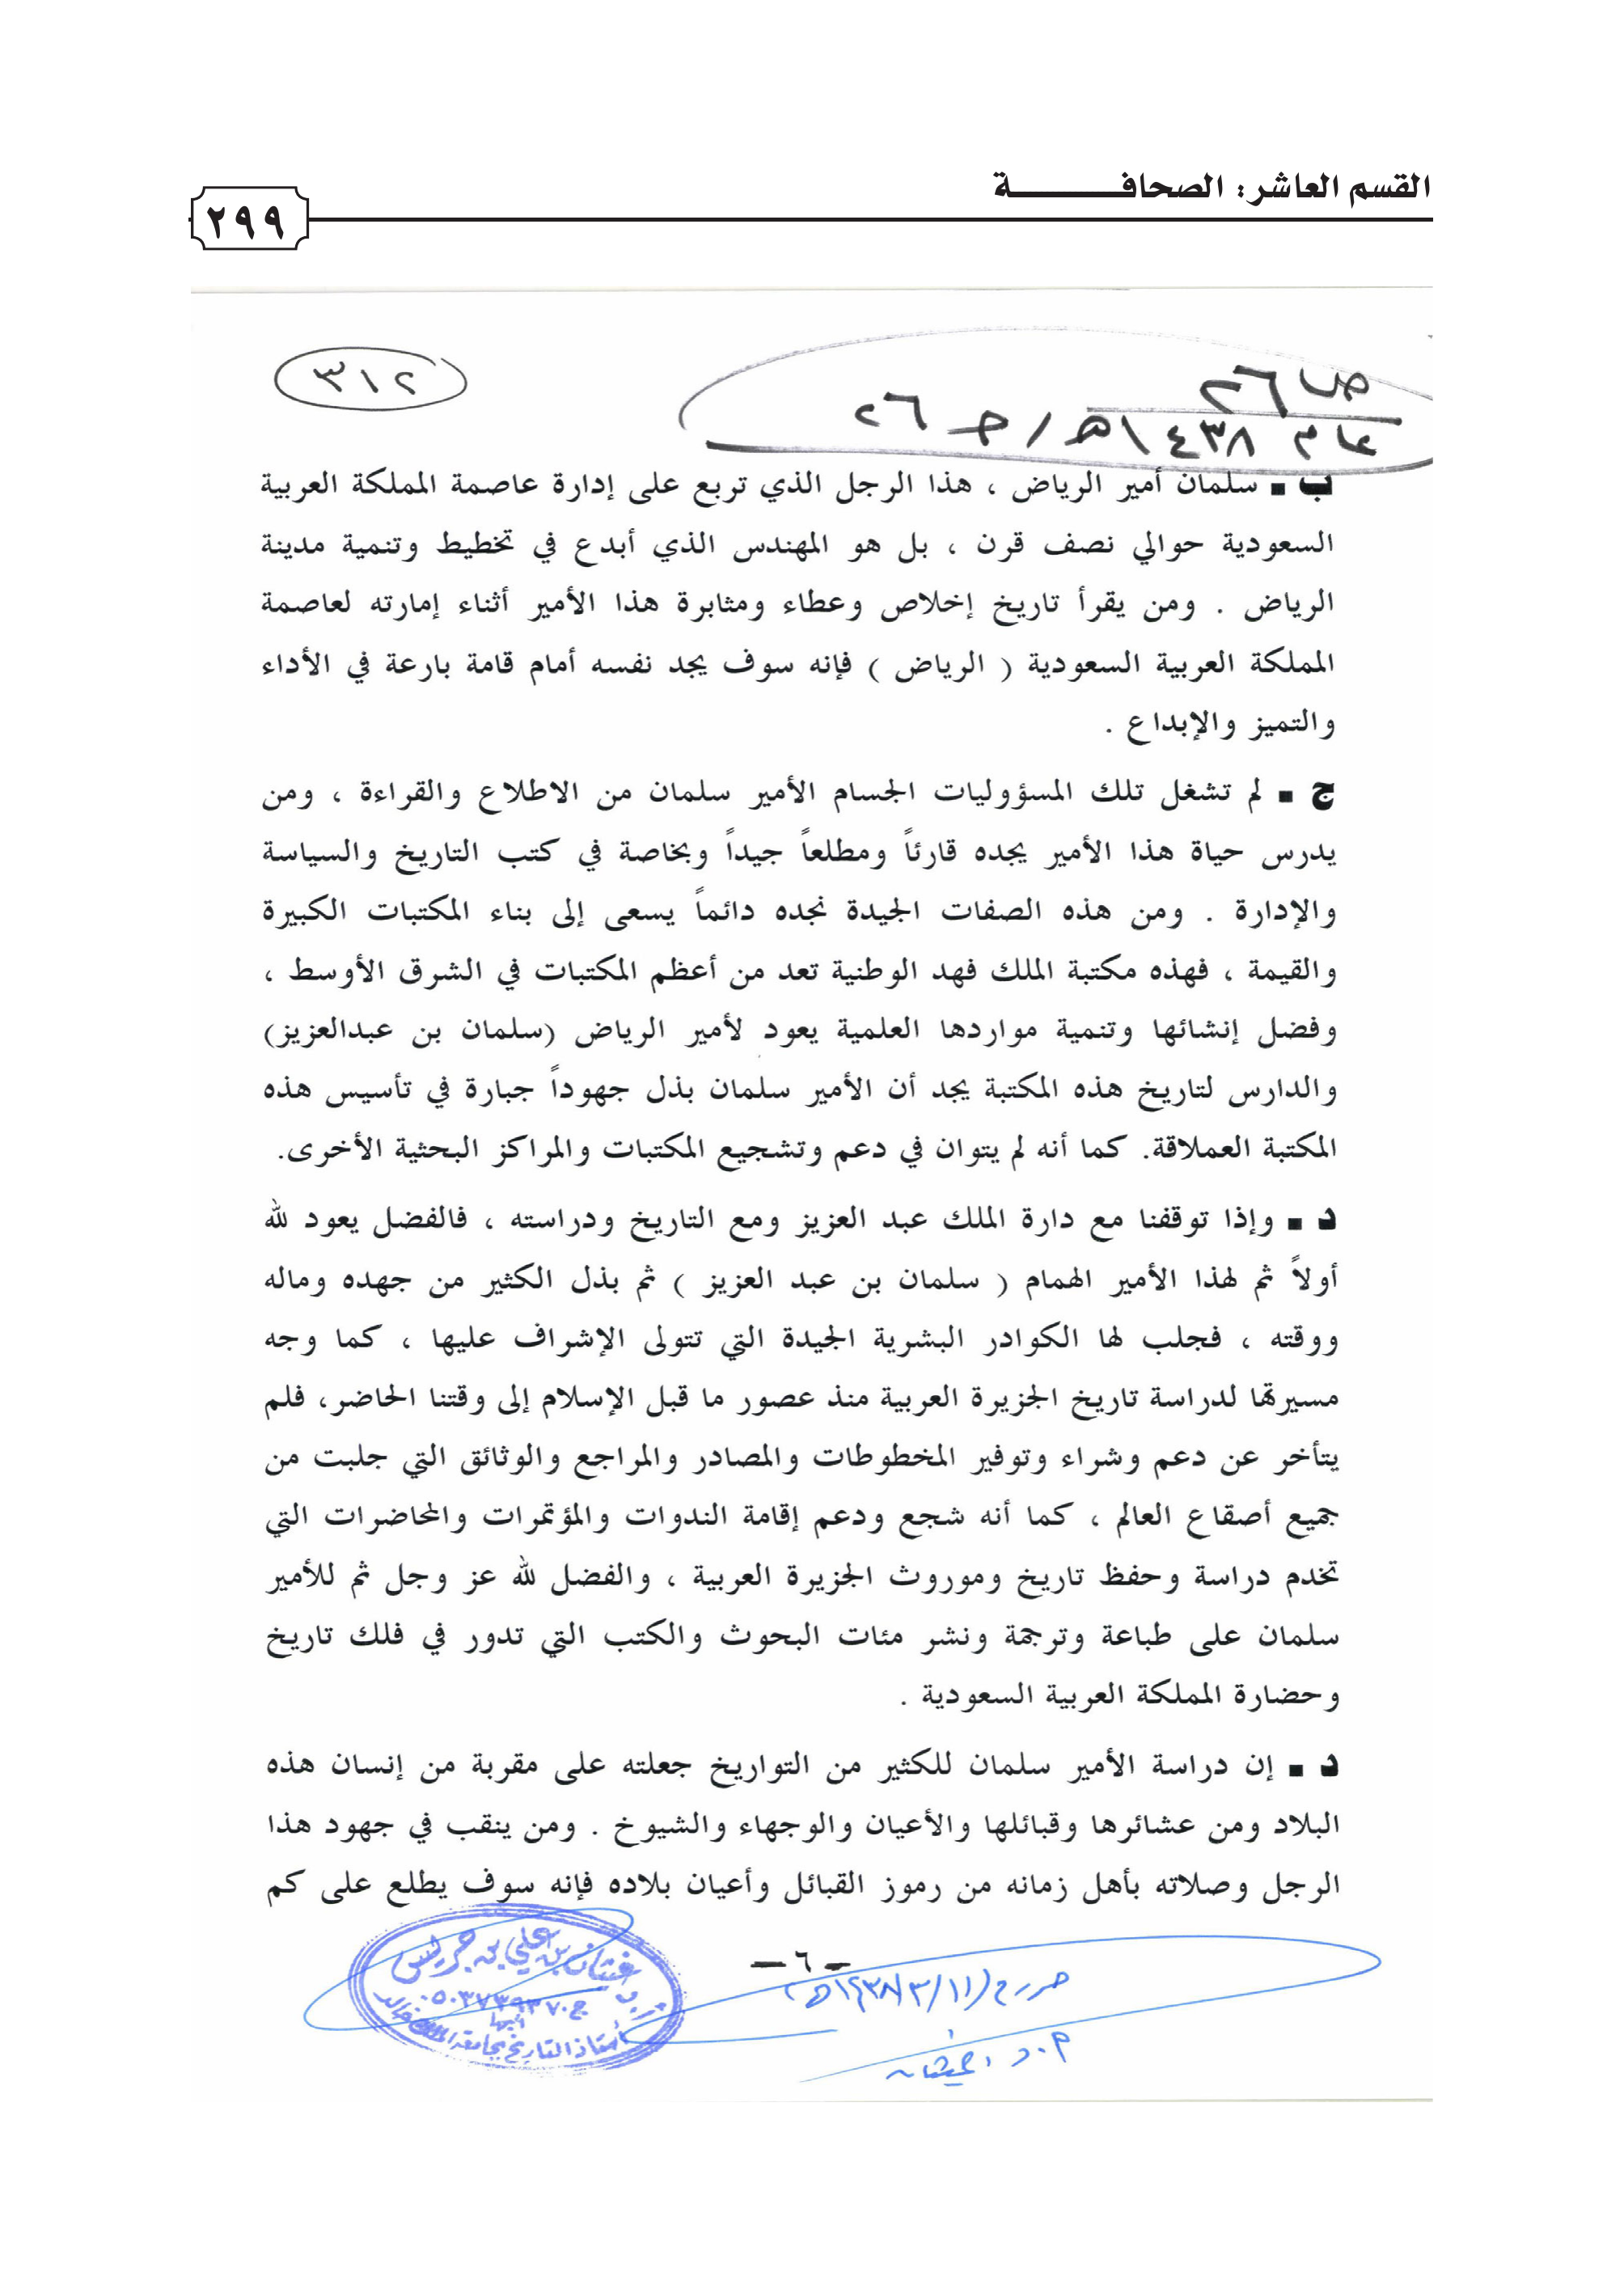 القسم العاشر: الصحافـــــــــة
٢٩٩
٣١٢
ص ٢٦
عام ١٤٣٨هـ / جـ ٢٦
ب ▪ سلمان أمير الرياض ، هذا الرجل الذي تربع على إدارة عاصمة المملكة العربية
السعودية حوالي نصف قرن ، بل هو المهندس الذي أبدع في تخطيط وتنمية مدينة
الرياض . ومن يقرأ تاريخ إخلاص وعطاء ومثابرة هذا الأمير أثناء إمارته لعاصمة
المملكة العربية السعودية ( الرياض ) فإنه سوف يجد نفسه أمام قامة بارعة في الأداء
والتميز والإبداع .
ج ▪ لم تشغل تلك المسؤوليات الجسام الأمير سلمان من الاطلاع والقراءة ، ومن
يدرس حياة هذا الأمير يجده قارئاً ومطلعاً جيداً وبخاصة في كتب التاريخ والسياسة
والإدارة . ومن هذه الصفات الجيدة نجده دائماً يسعى إلى بناء المكتبات الكبيرة
والقيمة ، فهذه مكتبة الملك فهد الوطنية تعد من أعظم المكتبات في الشرق الأوسط ،
وفضل إنشائها وتنمية مواردها العلمية يعود لأمير الرياض (سلمان بن عبدالعزيز)
والدارس لتاريخ هذه المكتبة يجد أن الأمير سلمان بذل جهوداً جبارة في تأسيس هذه
المكتبة العملاقة. كما أنه لم يتوان في دعم وتشجيع المكتبات والمراكز البحثية الأخرى.
د ▪ وإذا توقفنا مع دارة الملك عبد العزيز ومع التاريخ ودراسته ، فالفضل يعود لله
أولاً ثم لهذا الأمير الهمام ( سلمان بن عبد العزيز ) ثم بذل الكثير من جهده وماله
ووقته ، فجلب لها الكوادر البشرية الجيدة التي تتولى الإشراف عليها ، كما وجه
مسيرتها لدراسة تاريخ الجزيرة العربية منذ عصور ما قبل الإسلام إلى وقتنا الحاضر، فلم
يتأخر عن دعم وشراء وتوفير المخطوطات والمصادر والمراجع والوثائق التي جلبت من
جميع أصقاع العالم ، كما أنه شجع ودعم إقامة الندوات والمؤتمرات والمحاضرات التي
تخدم دراسة وحفظ تاريخ وموروث الجزيرة العربية ، والفضل لله عز وجل ثم للأمير
سلمان على طباعة وترجمة ونشر مئات البحوث والكتب التي تدور في فلك تاريخ
وحضارة المملكة العربية السعودية .
د ▪ إن دراسة الأمير سلمان للكثير من التواريخ جعلته على مقربة من إنسان هذه
البلاد ومن عشائرها وقبائلها والأعيان والوجهاء والشيوخ . ومن ينقب في جهود هذا
الرجل وصلاته بأهل زمانه من رموز القبائل وأعيان بلاده فإنه سوف يطلع على كم
– ٦ –
غيثان بن علي بن جريس
ج ٠٥٠٣٧٣٩٣٧٠
أبها
أستاذ التاريخ بجامعة الملك خالد